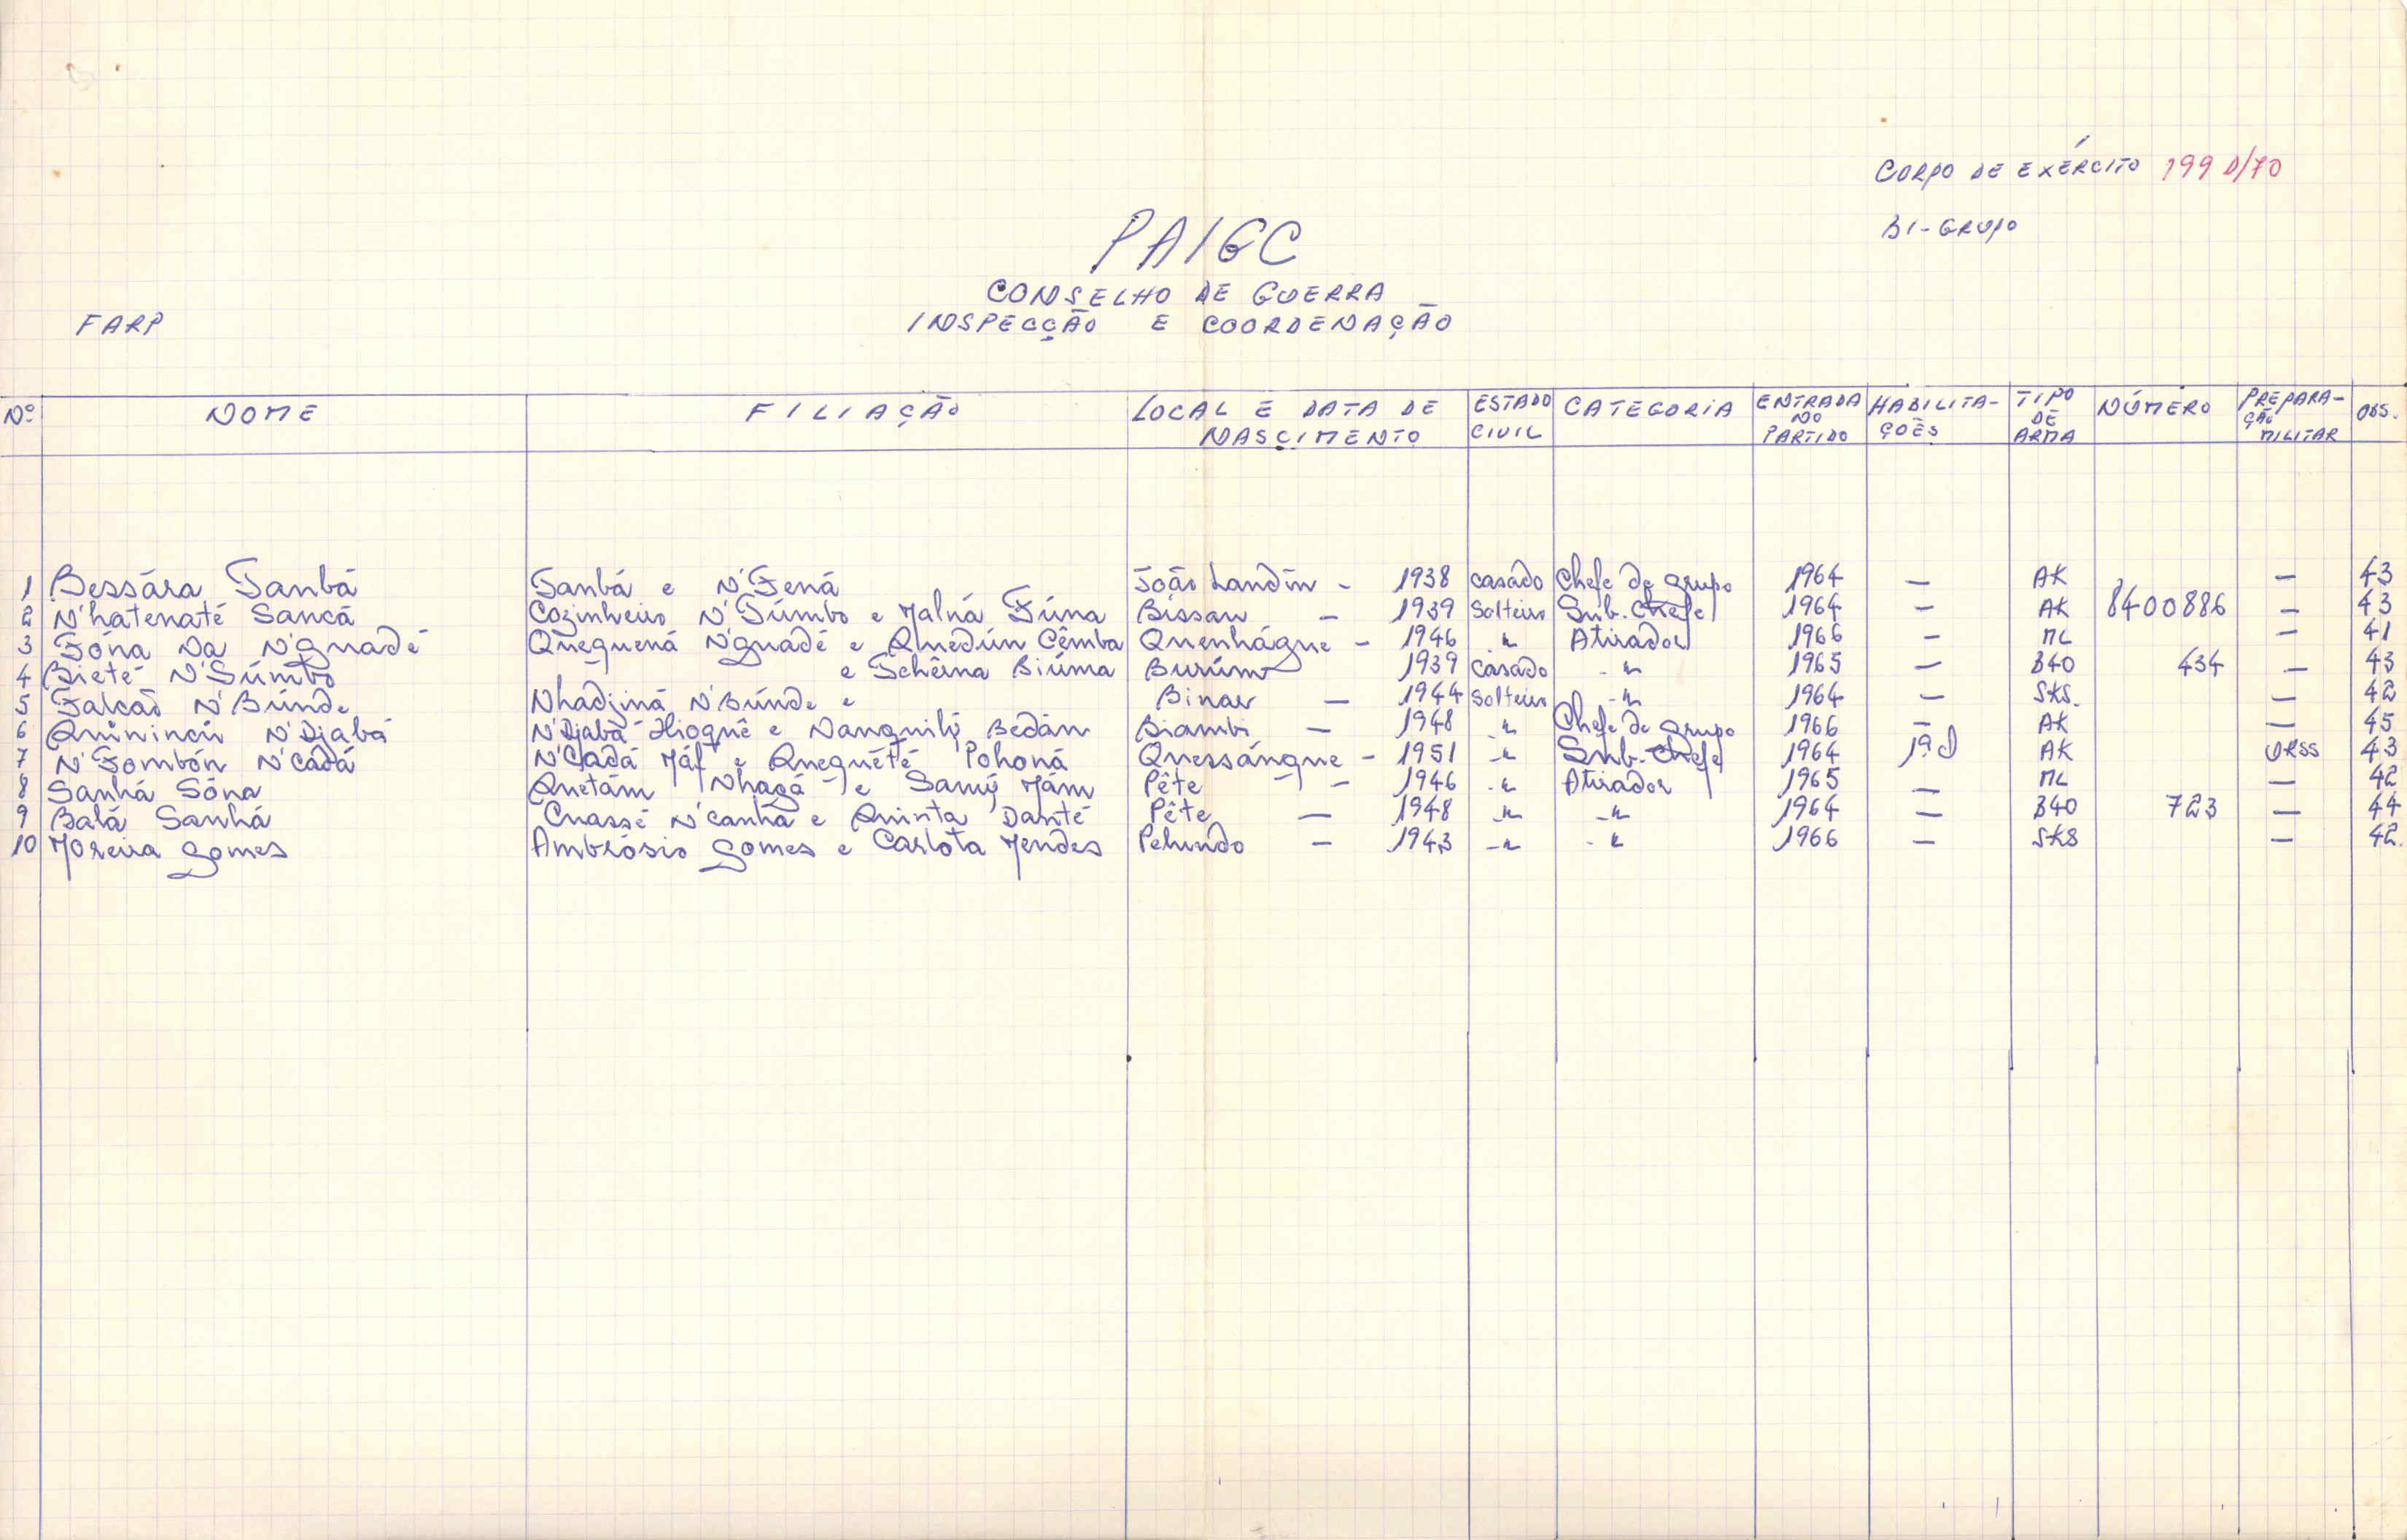 CORPO DE EXÉRCITO 199 D/70
BI-GRUPO
PAIGC
CONSELHO DE GUERRA
FARP INSPECÇÃO E COORDENAÇÃO
Nº NOME FILIAÇÃO LOCAL E DATA DE NASCIMENTO ESTADO CIVIL CATEGORIA ENTRADA NO PARTIDO HABILITAÇOẼS TIPO DE ARMA NÚMERO PREPARAÇÃO MILITAR OBS.
1 Bessára Tanbá Tanbá e N'Fená João Landin - 1938 casado Chefe de grupo 1964 — AK — 43
2 N'hatenaté Sancá Cozinheiro N'Túmbo e Malná Fúna Bissau - 1939 Solteiro Sub-Chefe 1964 — AK 8400886 — 43
3 Fóna Na N'guadé Quequená N'guadé e Quedún Cêmba Quenhágue - 1946 -"- Atirador 1966 — ML — 41
4 Bieté N'Súmbo e Tchêrna Biúma Burúm 1939 casado -"- 1965 — B40 434 — 43
5 Falcão N'Búnde Nhadjiná N'Búnde e Binar — 1944 Solteiro -"- 1964 — SKS. — 42
6 Quinincú N'Djabá N'Djabá Hioquê e Nanquilý Bedán Biambi — 1948 -"- Chefe de grupo 1966 — AK — 45
7 N'Fombón N'Cadá N'Cadá Máf e Quequété Pohoná Quessángue - 1951 -"- Sub-Chefe 1964 1ª cl AK URSS 43
8 Sanhá Sóna Quetám Nhagá e Samý Mám Pête - 1946 -"- Atirador 1965 — ML — 42
9 Balá Sanhá Cuassé N'canhá e Quinta Danté Pête — 1948 -"- -"- 1964 — B40 723 — 44
10 Moreira Gomes Ambrósio Gomes e Carlota Mendes Pelundo — 1943 -"- -"- 1966 — SKS — 42.